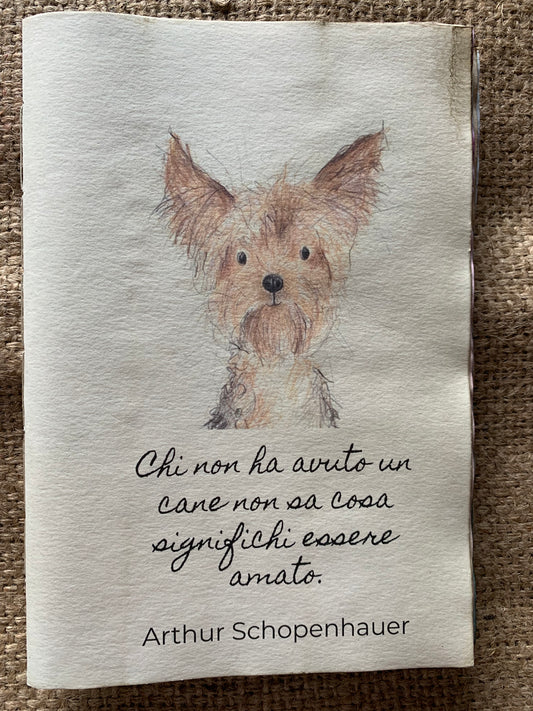 Chi non ha avuto un
cane non sa cosa
significhi essere
amato.
Arthur Schopenhauer